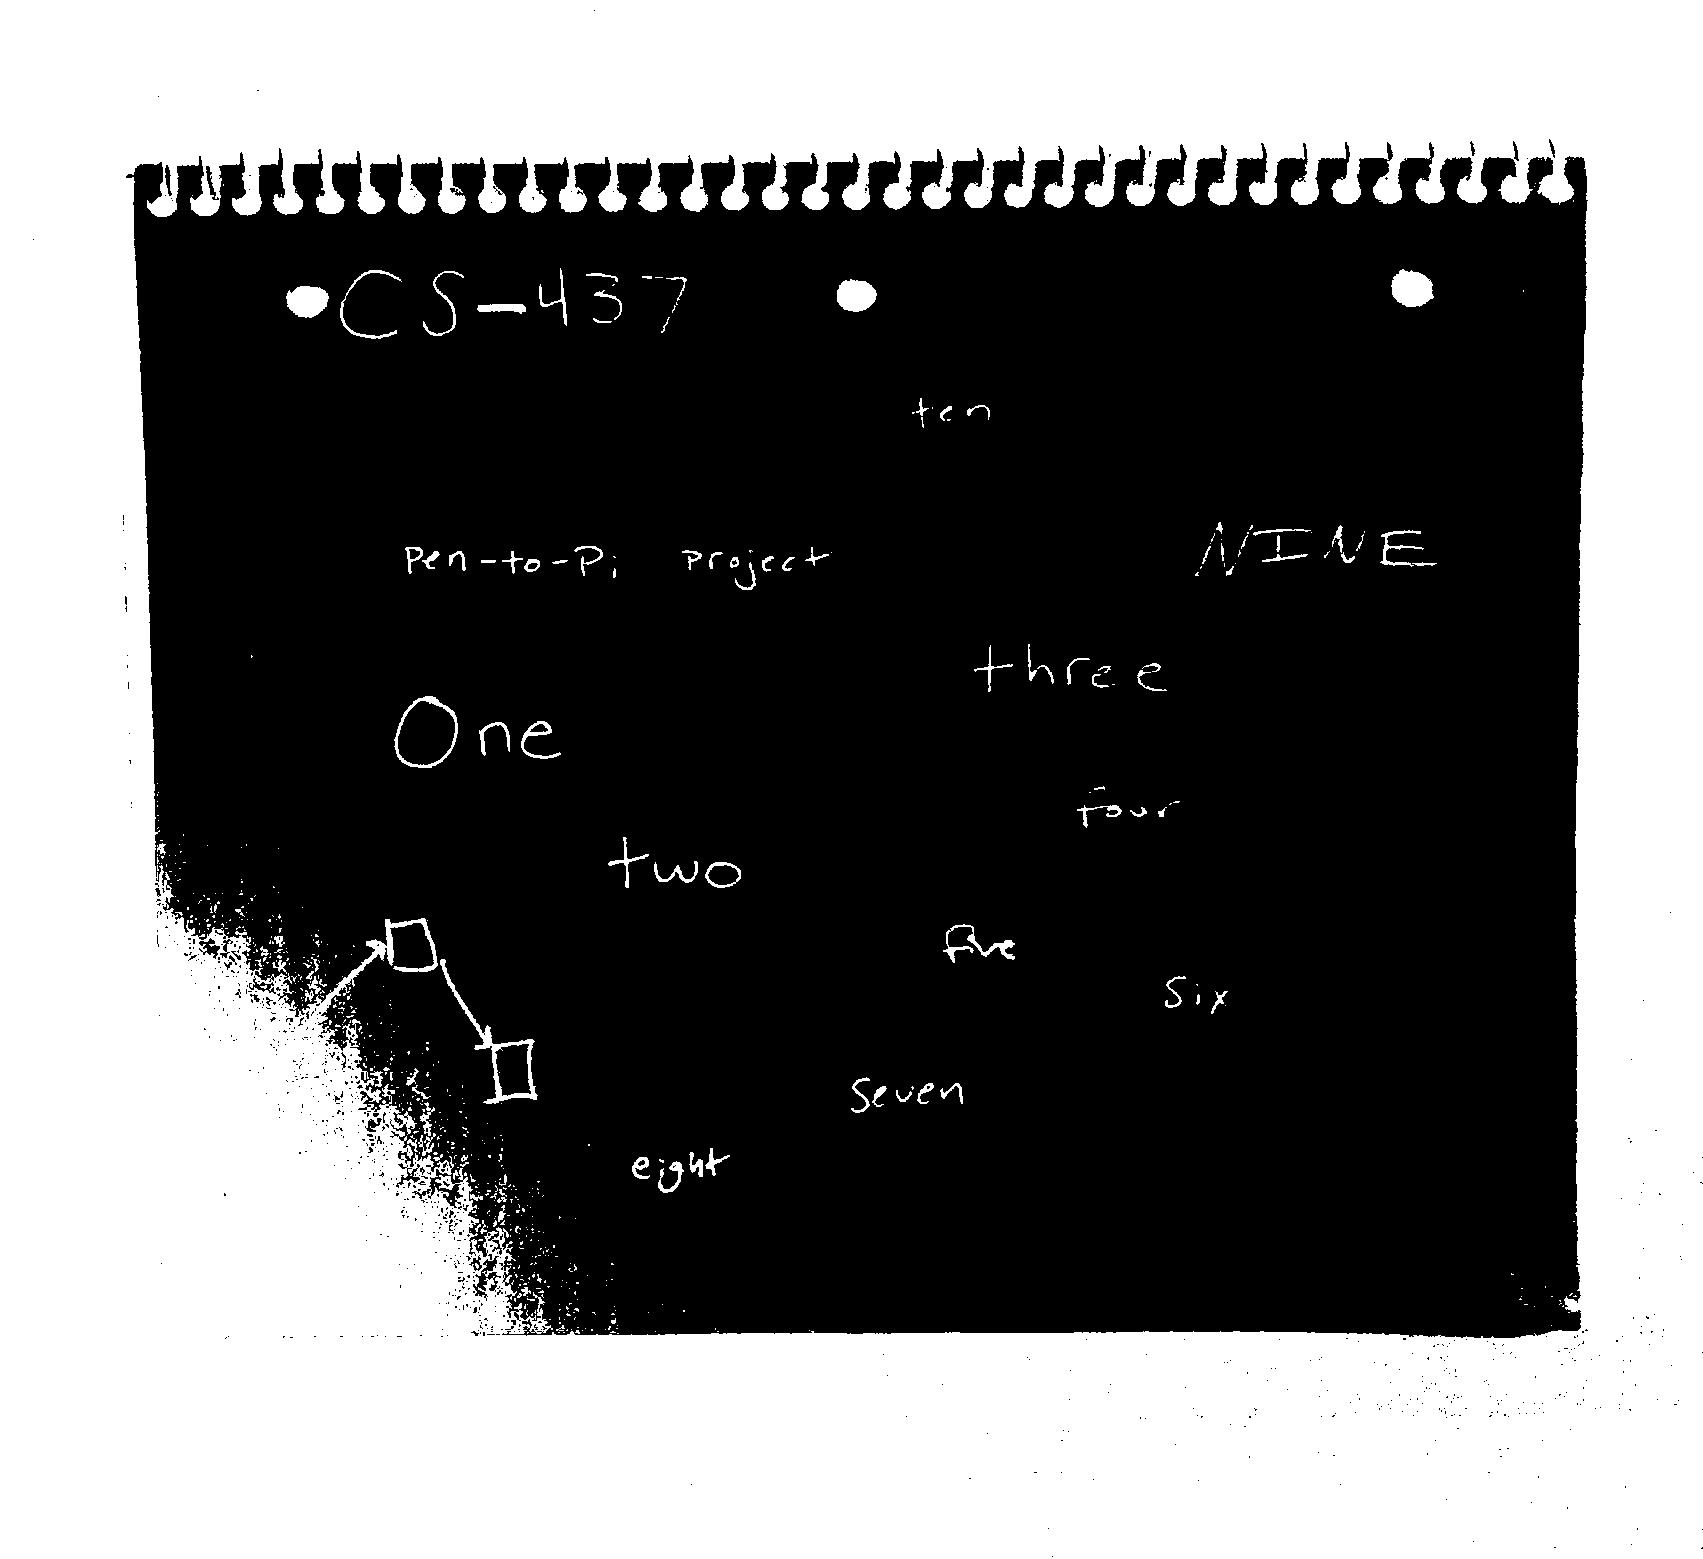 CS-437
ten
Pen-to-Pi project
NINE
three
One
four
two
five
six
seven
eight